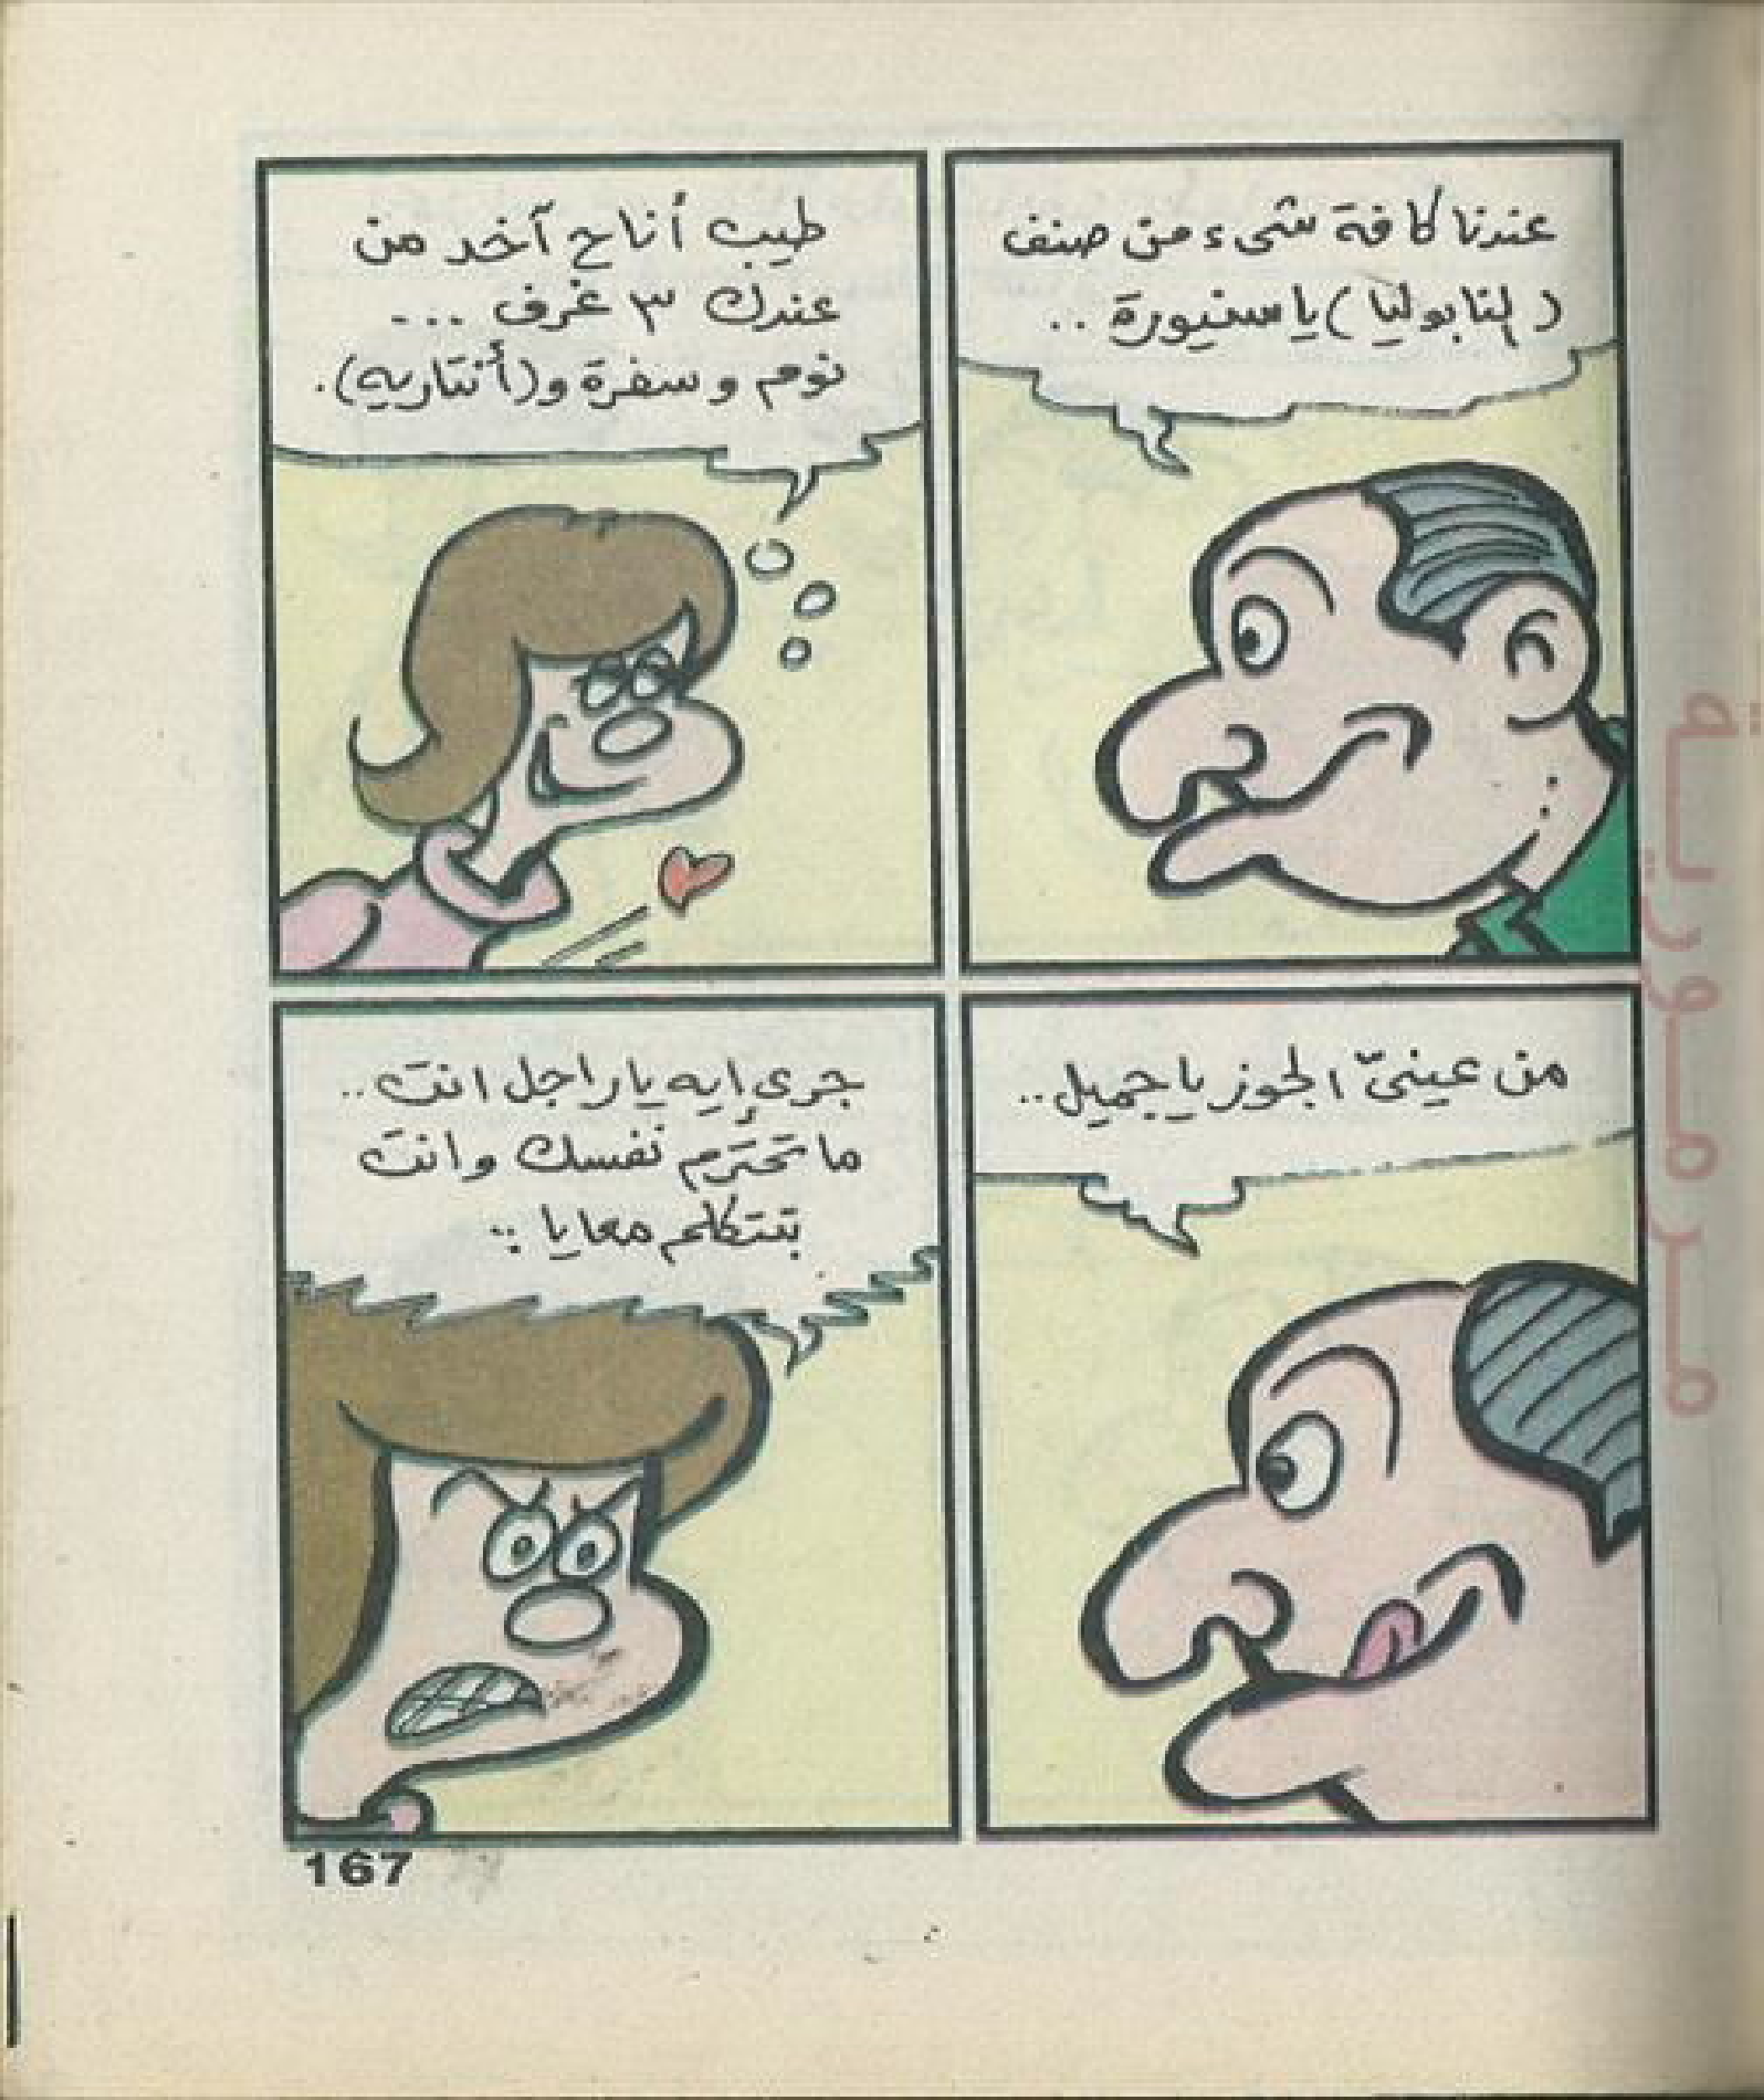 عندنا كافة شىء من صنف
(النابوليا) يا سنيورة ..
طيب أناح آخد من
عندك ٣ غرف ...
نوم وسفرة و(أنتاريه).
من عينىّ الجوز يا جميل..
جرى إيه يا راجل انت..
ما تحترم نفسك وانت
بتتكلم معايا ..
167
مرمورية